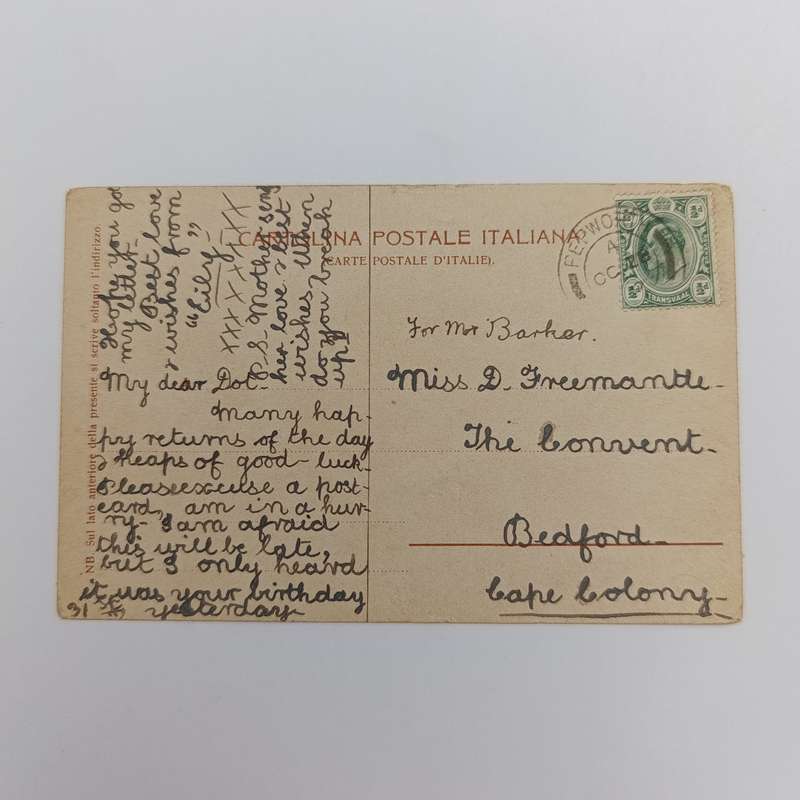 CARTOLINA POSTALE ITALIANA
(CARTE POSTALE D'ITALIE).
NB. Sul lato anteriore della presente si scrive soltanto l'indirizzo.
TRANSVAAL
For Mr Barker.
Miss D. Freemantle-
The Convent-
Bedford-
Cape Colony-
My dear Dot-
Many hap-
py returns of the day
& heaps of good-luck-
Please excuse a post-
card, am in a hur-
ry- I am afraid
this will be late,
but I only heard
it was your birthday
yesterday-
31st
Hope you got
my letter-
Best love
& wishes from
"Eily-"
XXXXXXXX
P.S. Mother sends
her love & best
wishes When
do you break
up?